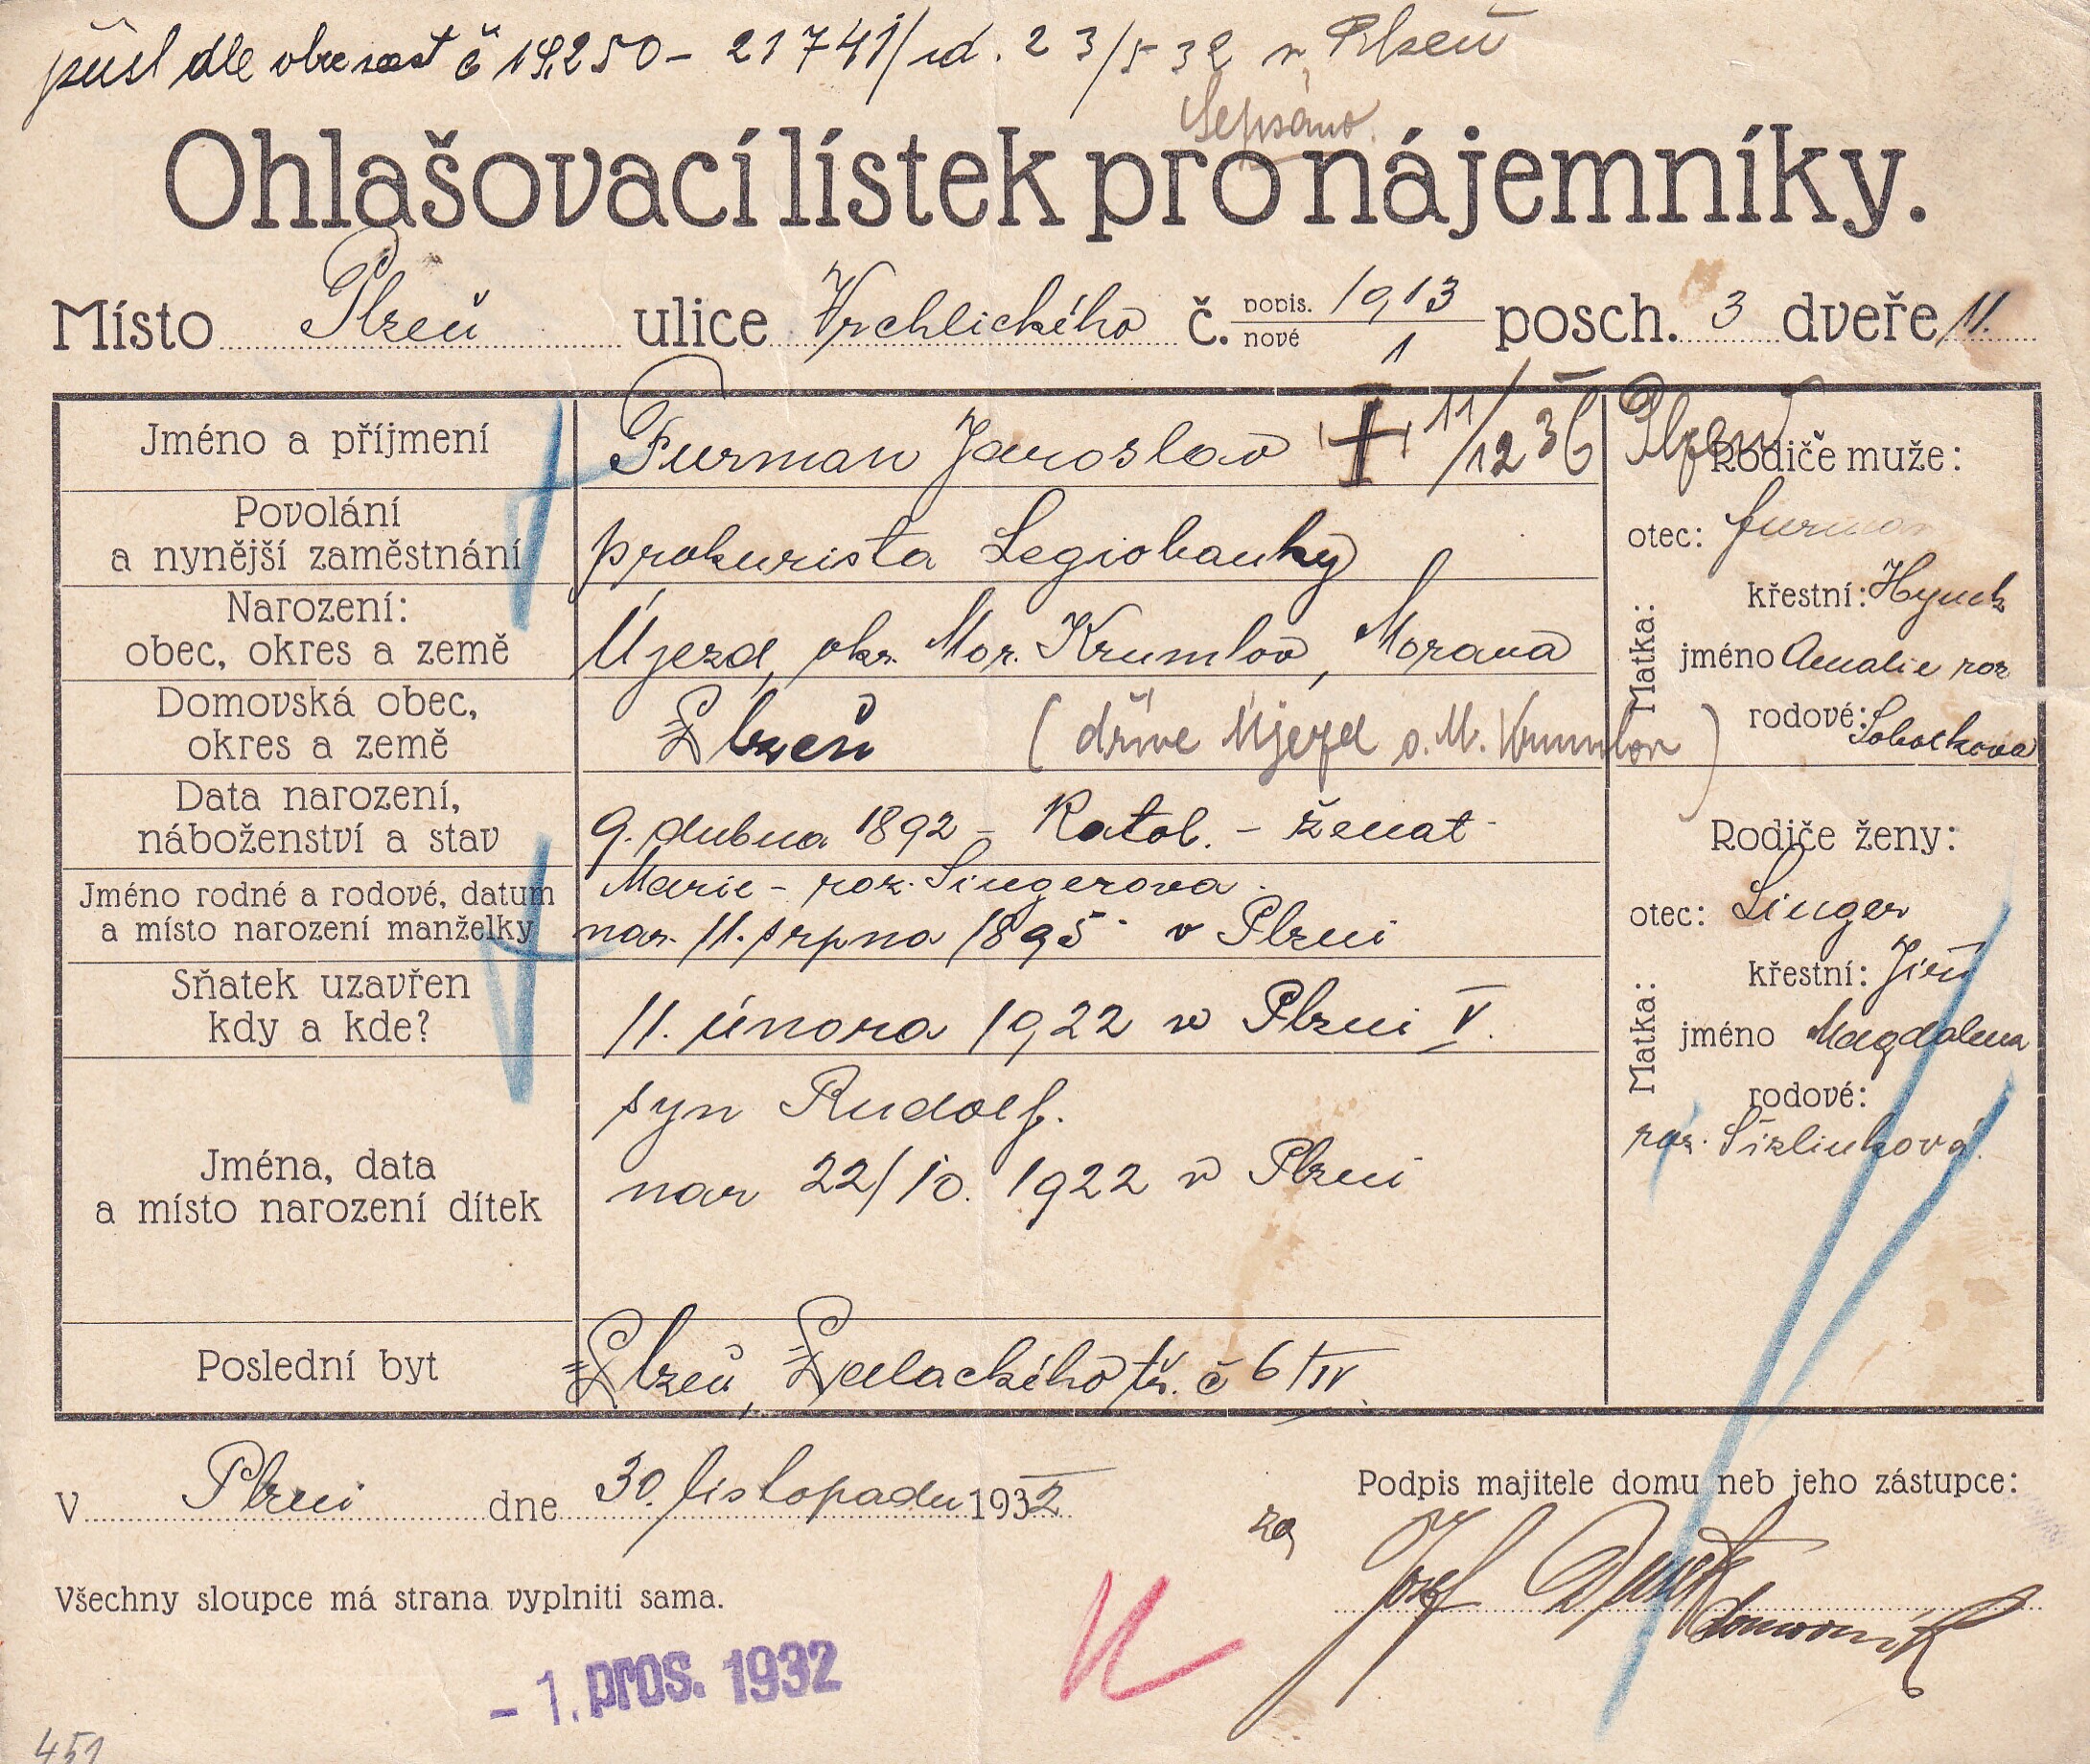 přísl dle obce č 19.250 - 21741/id. 23/5 32 v Plzeň
Sepsáno.
Ohlašovací lístek pro nájemníky.
Místo Plzeň ulice Vrchlického č. popis. 1913 nové 1 posch. 3 dveře 11.
Jméno a příjmení Furman Jaroslav † 11/12 36 Plzeň
Povolání
a nynější zaměstnání prokurista Legiobanky
Narození:
obec, okres a země Újezd, okr. Mor. Krumlov, Morava
Domovská obec,
okres a země Plzeň (dříve Újezd o. M. Krumlov)
Data narození,
náboženství a stav 9. dubna 1892 - Katol. - ženat -
Jméno rodné a rodové, datum
a místo narození manželky
Marie - roz. Singerova.
nar. 11. srpna 1895 v Plzni
Sňatek uzavřen
kdy a kde? 11. února 1922 v Plzni V.
Jména, data
a místo narození dítek
syn Rudolf.
nar 22/10. 1922 v Plzni
Poslední byt Plzeň, Palackého tř. č 6/IV.
Rodiče muže:
otec: furman
křestní: Hynek
Matka: jméno Amalie roz
rodové: Sobotkova
Rodiče ženy:
otec: Singer
křestní: Jiří
Matka: jméno Magdalena
rodové:
roz. Sizlinková.
V Plzni dne 30. listopadu 1932
Podpis majitele domu neb jeho zástupce:
za Josef
domovník
Všechny sloupce má strana vyplniti sama.
- 1. pros. 1932
451